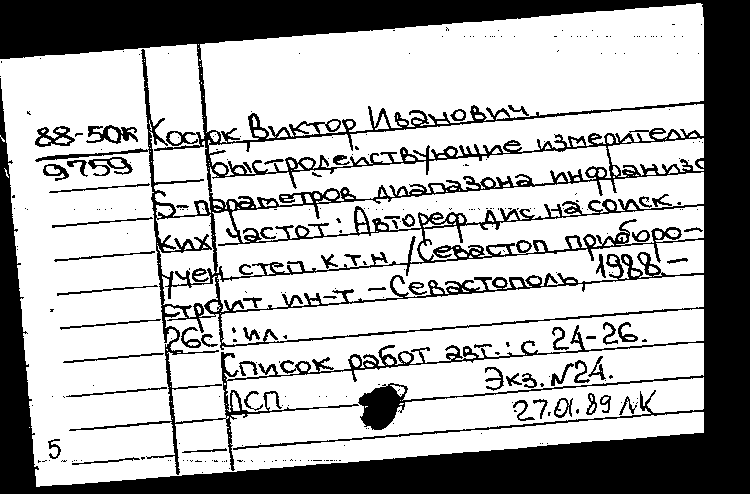 88-50к Косюк, Виктор Иванович.
9759 Быстродействующие измерители
S-параметров диапазона инфранизс
ких частот: Автореф дис. на соиск.
учен степ. к.т.н. /Севастоп приборо-
строит. ин-т. - Севастополь, 1988.-
26с.: ил.
Список работ авт.: с 24-26.
ДСП. Экз. N24.
27.01.89 ЛК
5